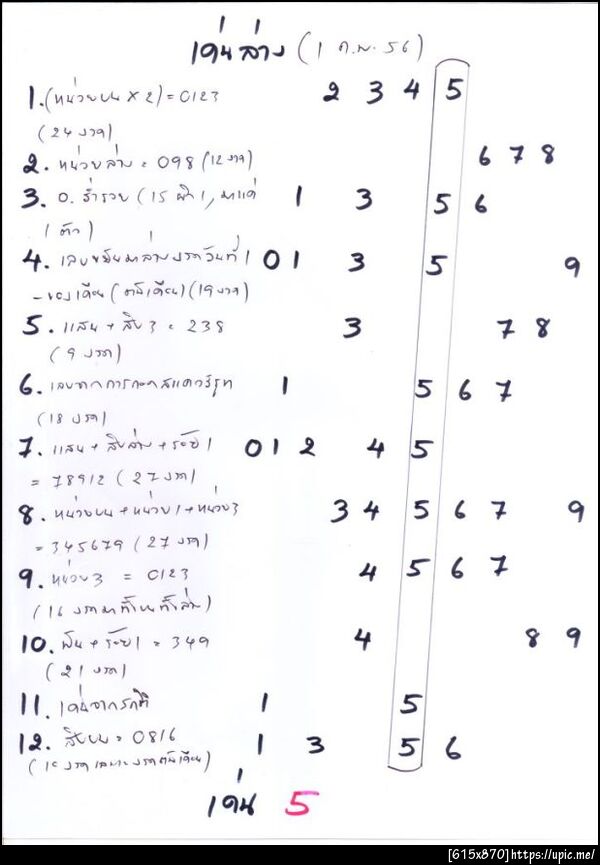 เด่นล่าง (1 ก.พ. 56)
1. (หน่วยบน x 2) = 0123 2 3 4 5
(24 งวด)
2. หน่วยล่าง = 098 (12 งวด) 6 7 8
3. อ. ร่ำรวย (15 ผิด 1, มาแค่ 1 3 5 6
1 ตัว)
4. เลขขยันมาล่างงวดวันที่ 1 0 1 3 5 9
- ของเดือน (ต้นเดือน) (19 งวด)
5. แสน + สิบ 3 = 238 3 7 8
(9 งวด)
6. 1 5 6 7
(18 งวด)
7. แสน + สิบล่าง + ร้อย 1 0 1 2 4 5
= 78912 (27 งวด)
8. หน่วยบน + หน่วย 1 + หน่วย 3 3 4 5 6 7 9
= 345679 (27 งวด)
9. หน่วย 3 = 0123 4 5 6 7
(16 งวดมาทั้งบนทั้งล่าง)
10. พัน + ร้อย 1 = 349 4 8 9
(21 งวด)
11. เด่นจาก 1 5
12. สิบบน = 0816 1 3 5 6
งวดเฉพาะงวดต้นเดือน)
เด่น 5
[615x870]https://upic.me/